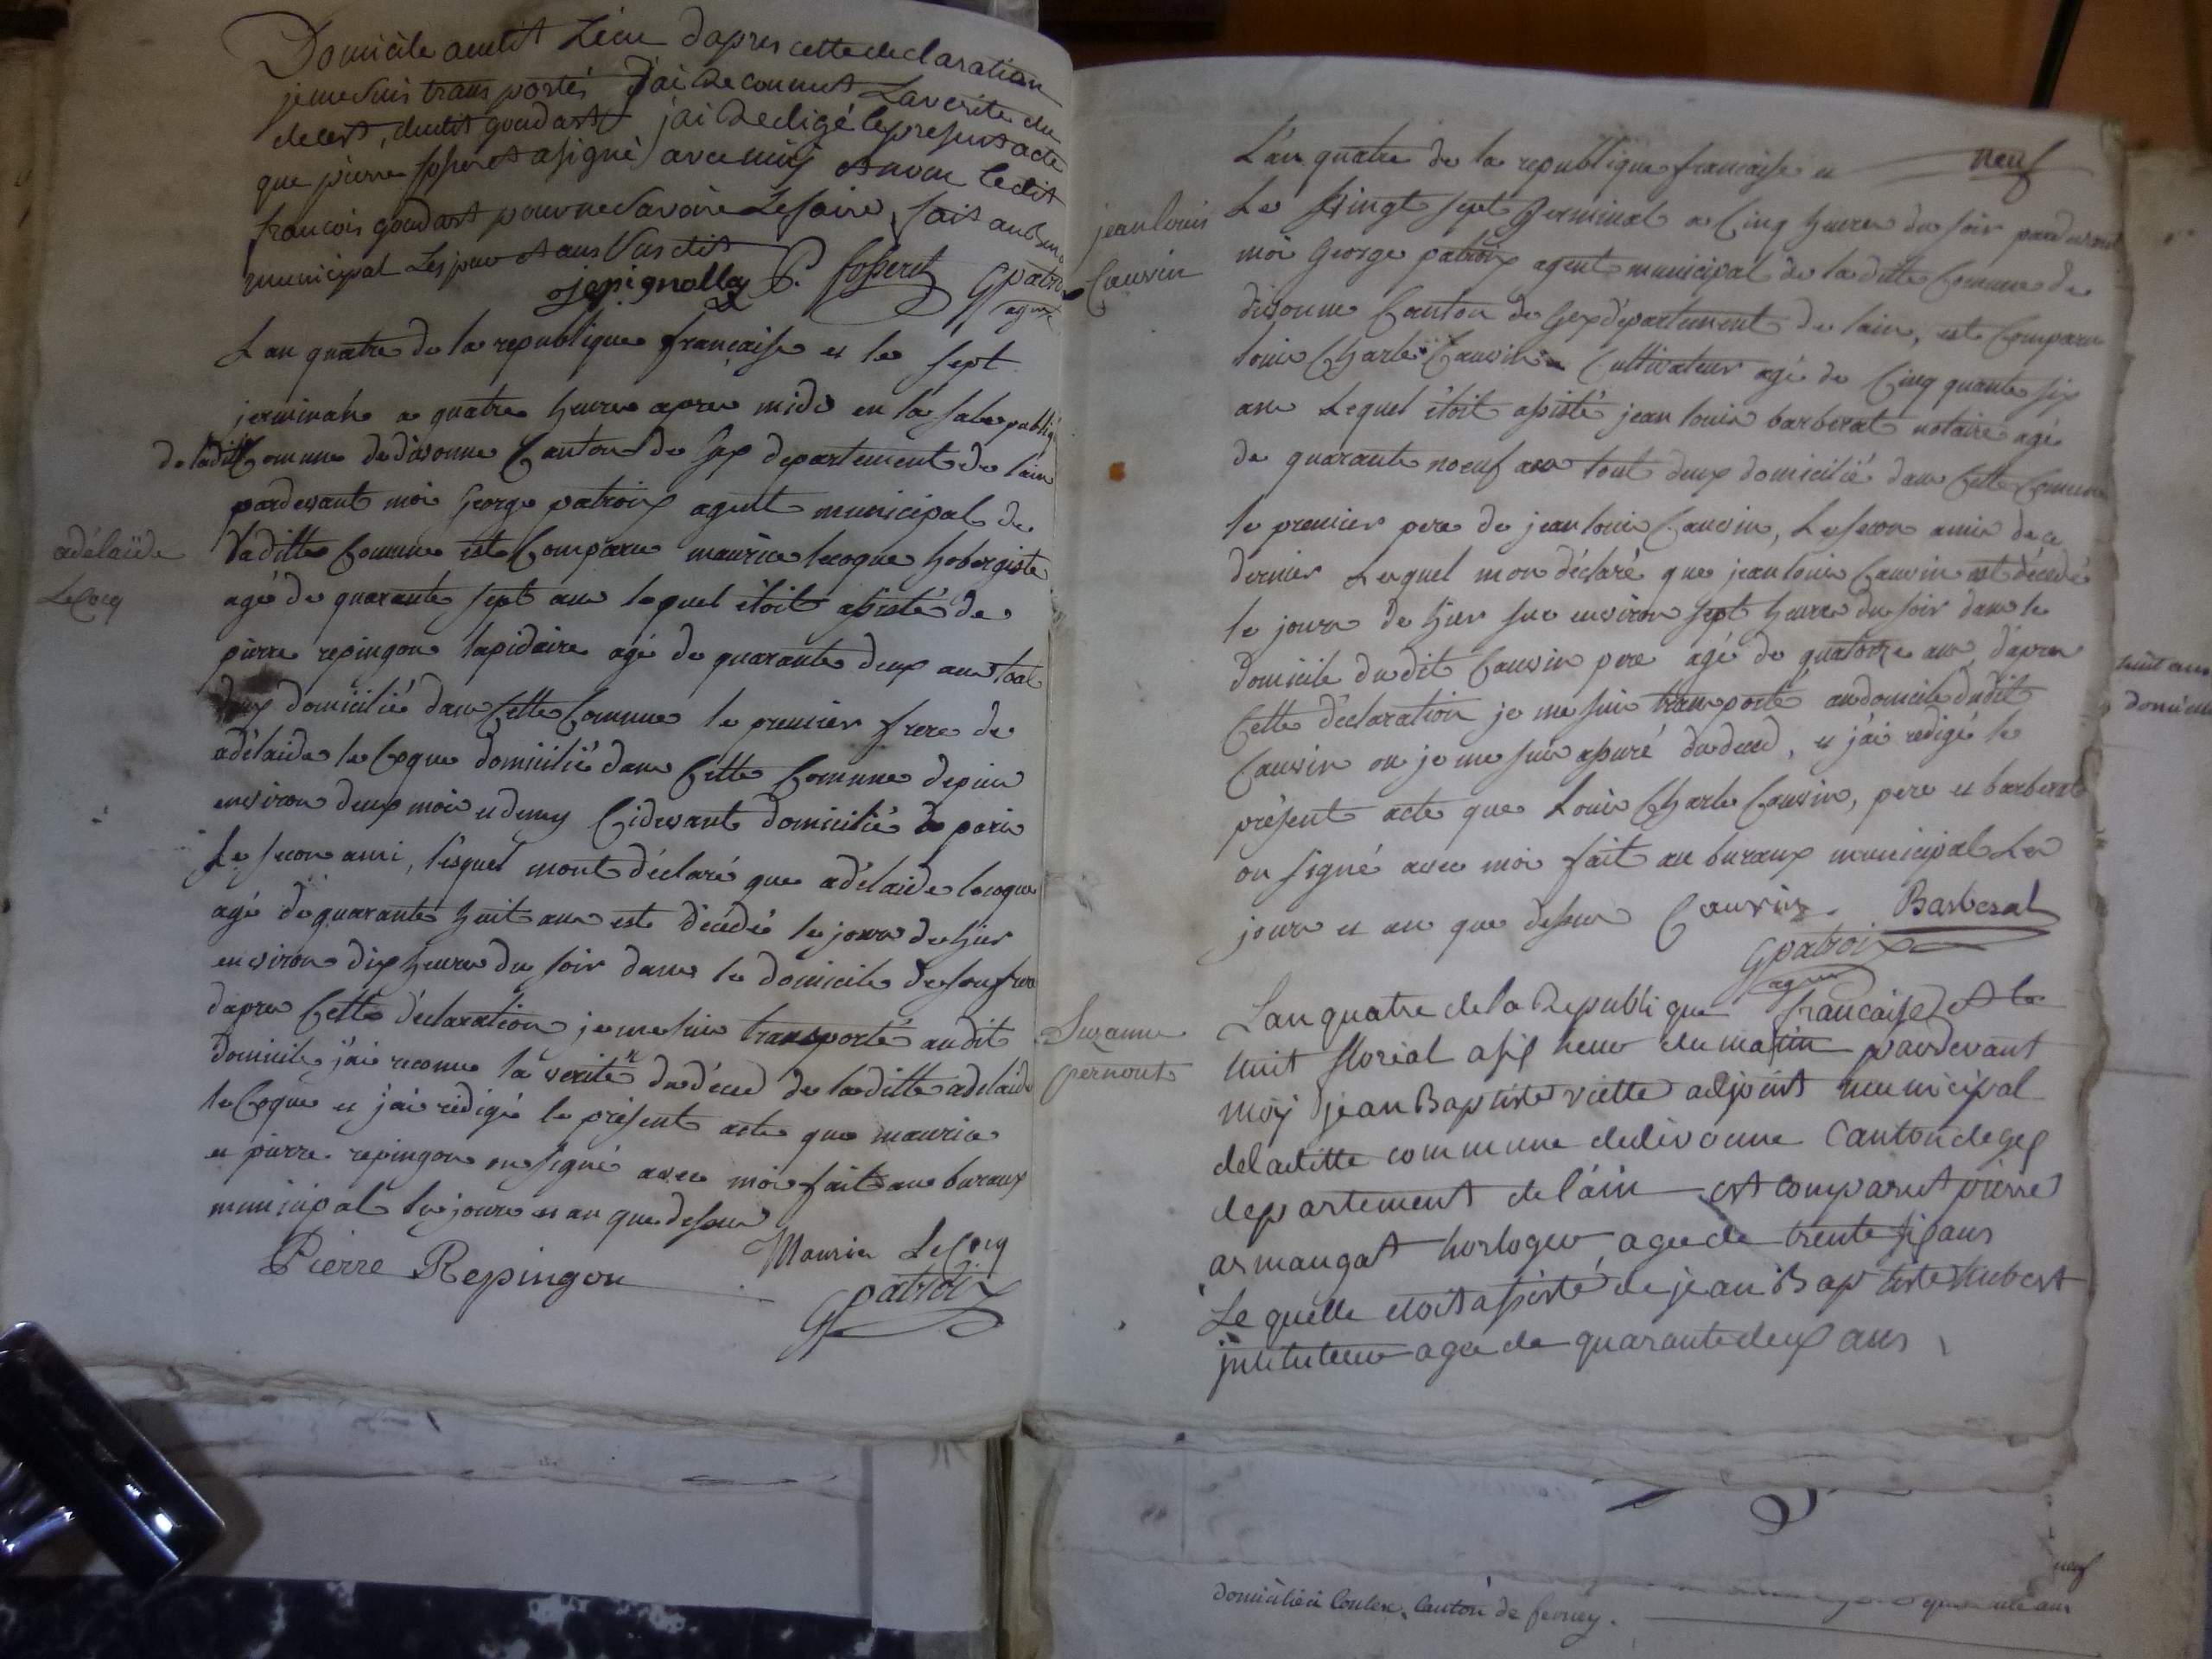 Domicile audit Lieu d'apres cette declaration
je me suis transportés J'ai Reconnut La verité du
deces, dudit goudart j'ai Redigé le present acte
que pierre fosseret a signé avec moy et non ledit
francois goudart pour ne Savoire Le faire, fait au Bur
municipal Les jour et ans Susdit
P. fosseret GPatroix
agent
L'an quatre de la republique francaise et le sept
jerminale a quatre heures apres midi en la sale publiq
de ladite Comune de divonne Canton de Gex departement de l'ain
pardevant moi George patroix agent municipal de
laditte Comune est Comparu maurice lecoque hobergiste
agé de quarante sept ans lequel étoit assisté de
pierre repingon lapidaire agé de quarante deux ans tout
deux domicilié dans Cette Commune le premier frere de
adélaide le Coque domicilié dans Cette Commune depuis
environ deux mois et demy Cidevant domicilié de paris
Le secon ami, lesquel mont déclaré que adélaide lecoque
agé de quarante huit ans est décédé le jour de hier
environ dix heures du soir dans le domicile de son frere
dapres Cette déclaration je me suis transporté audit
domicile j'ai reconu la verité du déced de laditte adelaide
le Coque et j'ai rédigé le présent acte que maurice
et pierre repingon on signé avec moi fait au buraux
municipal les jour et an que dessus
Pierre Repingon Maurice LeCocq
GPatroix
adélaïde
LeCocq
neuf
L'an quatre de la republique francaise et
Le vingt sept Germinal a Cinq heures du soir pardevant
moi George patroix agent municipal de laditte Commune de
divonne Canton de Gex département de lain, est Comparu
louis Charle Cauvin Cultivateur agé de Cinquante six
ans Lequel étoit assisté jean louis barberat notaire agé
de quarante noeuf ans tout deux domicilié dans Cette Commune
le premier pere de jean louis Cauvin, Le secon amis de ce
dernier Lesquel mon déclaré que jean louis Cauvin est décédé
le jour de hier sur environ sept heures du soir dans le
domicile dudit Cauvin pere agé de quatorze ans, d'apres
Cette déclaration je me suis transporté au domicile dudit
Cauvin ou je me suis assuré du deced, et j'ai redigé le
présent acte que Louis Charle Cauvin, pere et barberat
on signé avec moi fait au buraux municipal Les
jour et an que dessus Cauvin Barberat
GPatroix
agent
jean louis
Cauvin
Suzanne
pernout
L'an quatre de la Republique francaise et le
huit floréal a six heure du matin pardevant
moy jean Baptiste viette adjoint municipal
de laditte commune de divonne Canton de gex
departement de l'ain est comparut pierre
armangat horloger, agé de trente six ans
Le quelle etoit assisté de jean Baptiste hubert
jnstituteur agé de quarante deux ans
huit ans
domicilié
neuf
domicilié à Conlex, Canton de ferney.